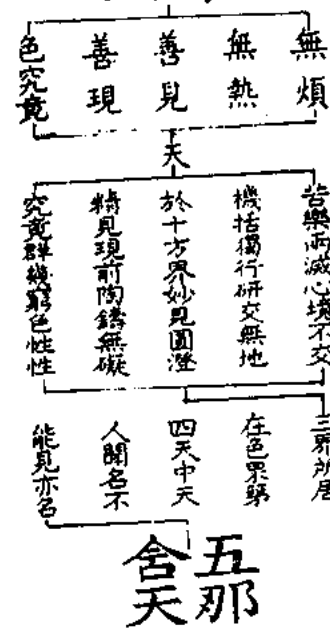 無煩
無熱
善見
善現
色究竟
天
苦樂兩滅心境不交
機括獨行研交無地
於十方界妙見圓澄
精見現前陶鑄無礙
究竟群幾窮色性性
三界所居
在色界第
四天中天
人聞名不
能見亦名
五那
含天